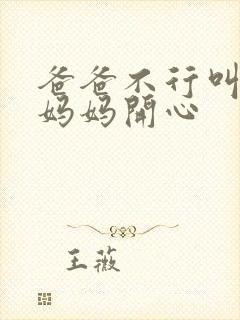 爸爸不行叫
妈妈開心
王薇